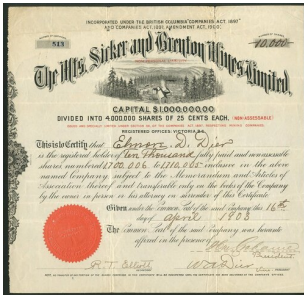 INCORPORATED UNDER THE BRITISH COLUMBIA "COMPANIES ACT, 1897"
AND COMPANIES ACT, 1897, AMENDMENT ACT, 1900
513
10,000
The Mts. Sicker and Brenton Mines, Limited.
CAPITAL $1,000,000.00
DIVIDED INTO 4,000,000 SHARES OF 25 CENTS EACH. (NON-ASSESSABLE)
REGISTERED OFFICE: VICTORIA B.C.
This is to Certify that Elmon D. Dier
is the registered holder of ten thousand fully paid and nonassessable
shares numbered 1,700,006 to 1,710,005 inclusive in the above
named Company, subject to the Memorandum and Articles of
Association thereof and transferable only on the books of the Company
by the owner in person or his attorney on surrender of this Certificate
Given under the Common Seal of the said Company this 16th
day of April 1903
The Common Seal of the said Company was hereunto
affixed in the presence of
President
R. T. Elliott
W. A. Dier